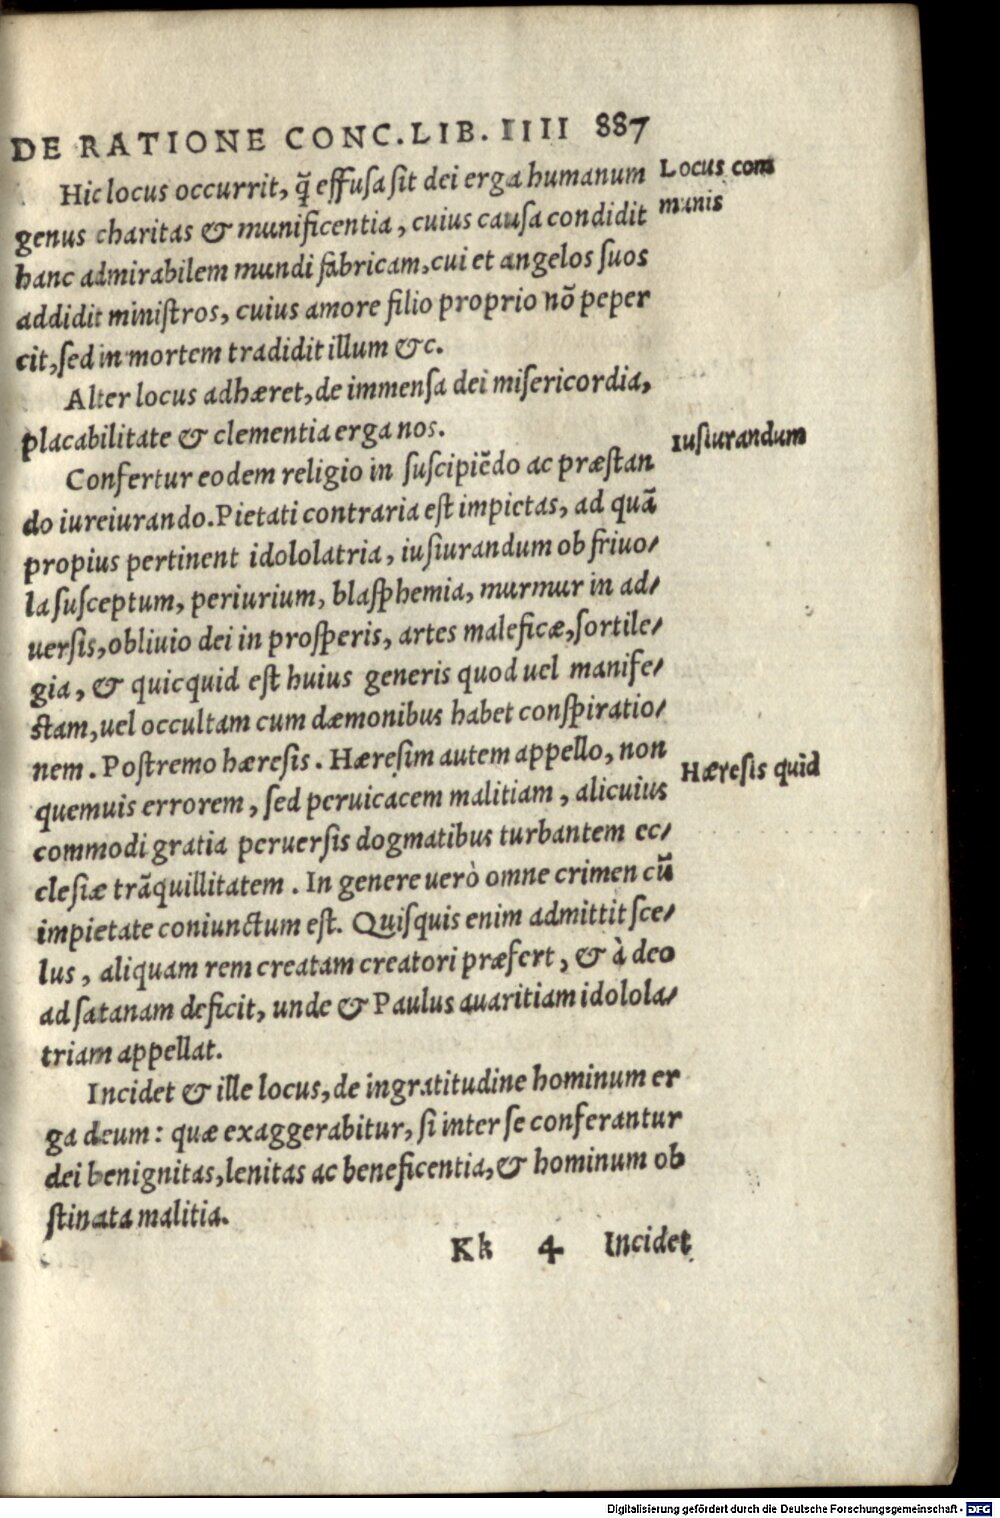 DE RATIONE CONC. LIB. IIII 887
Hic locus occurrit, q̃ effusa sit dei erga humanum
Locus com
genus charitas & munificentia, cuius causa condidit
munis
hanc admirabilem mundi fabricam, cui et angelos suos
addidit ministros, cuius amore filio proprio nõ peper
cit, sed in mortem tradidit illum &c.
Alter locus adhæret, de immensa dei misericordia,
placabilitate & clementia erga nos.
Iusiurandum
Confertur eodem religio in suscipiẽdo ac præstan
do iureiurando. Pietati contraria est impietas, ad quã
propius pertinent idololatria, iusiurandum ob friuo/
la susceptum, periurium, blasphemia, murmur in ad/
uersis, obliuio dei in prosperis, artes maleficæ, sortile/
gia, & quicquid est huius generis quod uel manife/
stam, uel occultam cum dæmonibus habet conspiratio/
nem. Postremo hæresis. Hæresim autem appello, non
Hæresis quid
quemuis errorem, sed peruicacem malitiam, alicuius
commodi gratia peruersis dogmatibus turbantem ec/
clesiæ trãquillitatem. In genere uerò omne crimen cũ
impietate coniunctum est. Quisquis enim admittit sce/
lus, aliquam rem creatam creatori præfert, & à deo
ad satanam deficit, unde & Paulus auaritiam idolola/
triam appellat.
Incidet & ille locus, de ingratitudine hominum er
ga deum: quæ exaggerabitur, si inter se conferantur
dei benignitas, lenitas ac beneficentia, & hominum ob
stinata malitia.
Kk 4 Incidet
Digitalisierung gefördert durch die Deutsche Forschungsgemeinschaft - DFG